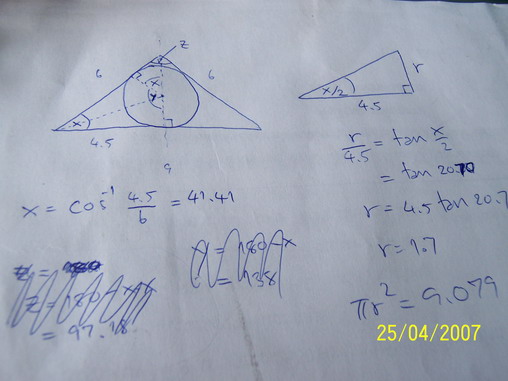 z
6
6
x
4.5
9
x = cos⁻¹ 4.5/6 = 41.41
z = 180 - x - x
= 97.18
= 180 - x
= 138
r
x/2
4.5
r/4.5 = tan x/2
= tan 20.70
r = 4.5 tan 20.7
r = 1.7
πr² = 9.079
25/04/2007